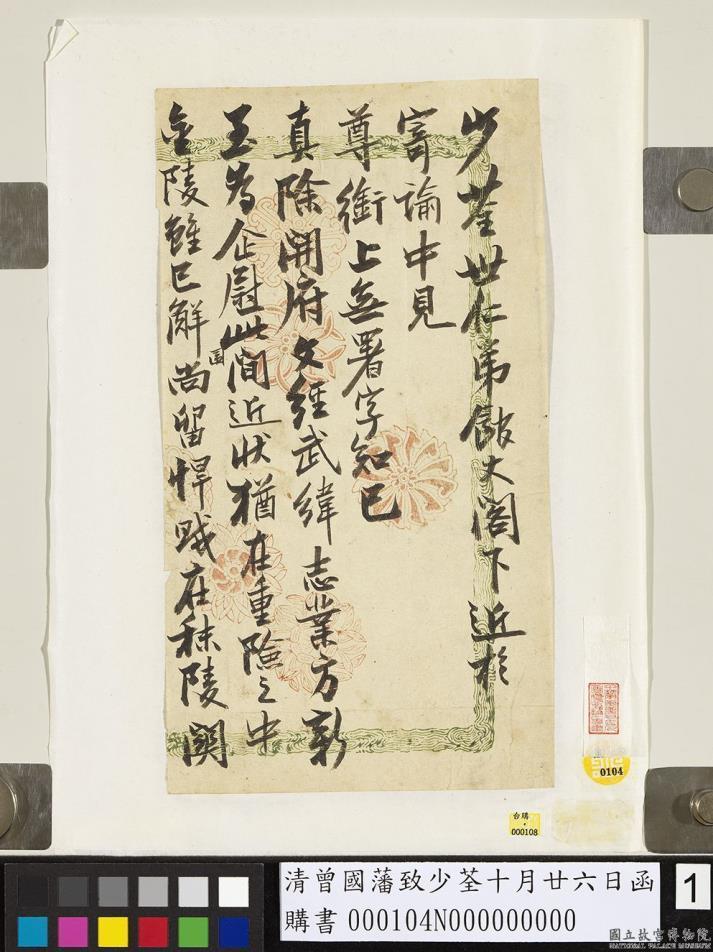 少荃世仁弟館丈閣下近於
寄諭中見
尊銜上無署字知已
真除開府文經武緯志業方新
至為企慰此間近狀猶在重險之中
金陵雖已解
圍
尚留悍賊在秣陵關
0104
台購
000108
清曾國藩致少荃十月廿六日函
購書 000104N000000000
1
國立故宮博物院
NATIONAL PALACE MUSEUM